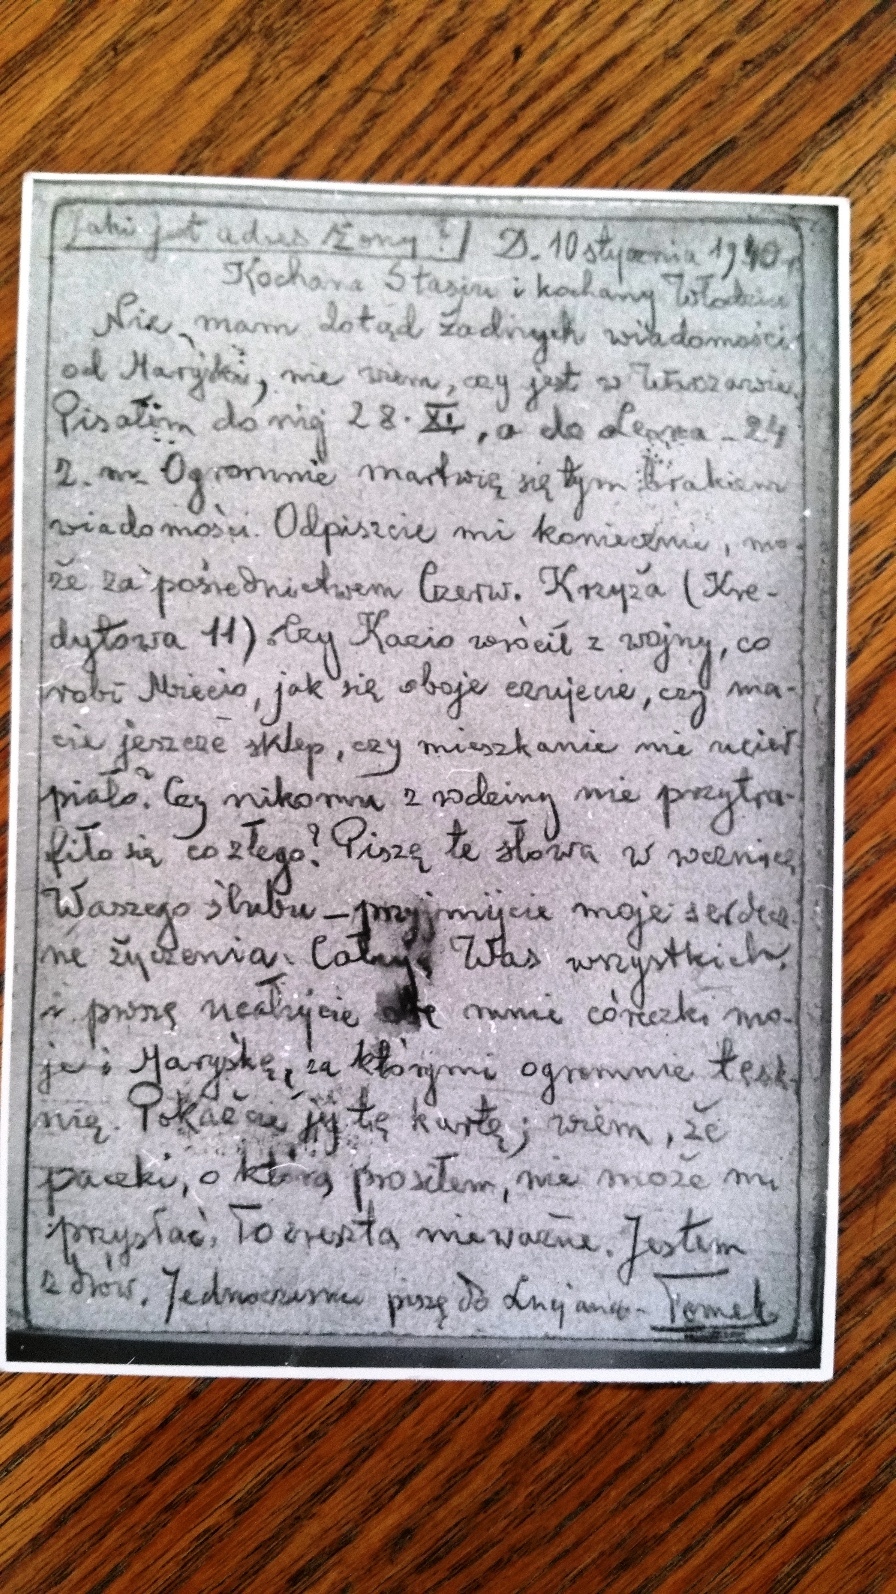 Jaki jest adres Żony?
D. 10 stycznia 1940 r.
Kochana Stasiu i kochany Włodziu
Nie mam dotąd żadnych wiadomości
od Maryśki, nie wiem, czy jest w Warszawie.
Pisałem do niej 28. XI, a do - 24
z. m. Ogromnie martwię się tym brakiem
wiadomości. Odpiszcie mi koniecznie, mo-
że za pośrednictwem Czerw. Krzyża (Kre-
dytowa 11). Czy Kazio wrócił z wojny, co
robi Miecio, jak się oboje czujecie, czy ma-
cie jeszcze sklep, czy mieszkanie nie ucier-
piało? Czy nikomu z rodziny nie przytra-
fiło się co złego? Piszę te słowa w rocznicę
Waszego ślubu - przyjmijcie moje serdecz-
ne życzenia. Całuję Was wszystkich,
i proszę ucałujcie ode mnie córeczki mo-
je i Maryśkę, za którymi ogromnie tęsk-
nię. Pokażcie jej tę kartę; wiem, że
paczki, o którą prosiłem, nie może mi
przysłać. To zresztą nieważne. Jestem
zdrów. Jednocześnie piszę do Lucjana - Tomek